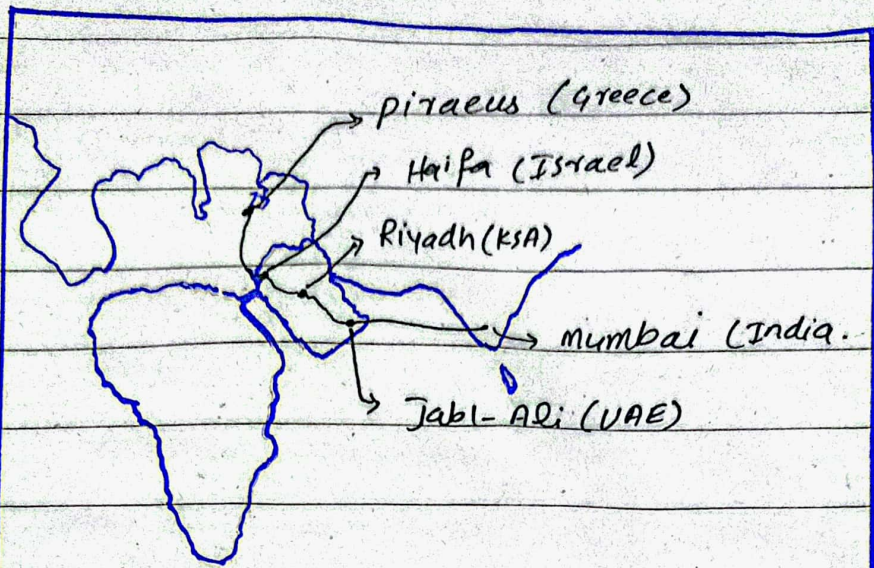 Piraeus (Greece)
Haifa (Israel)
Riyadh (KSA)
mumbai (India.
Jabl-Ali (UAE)